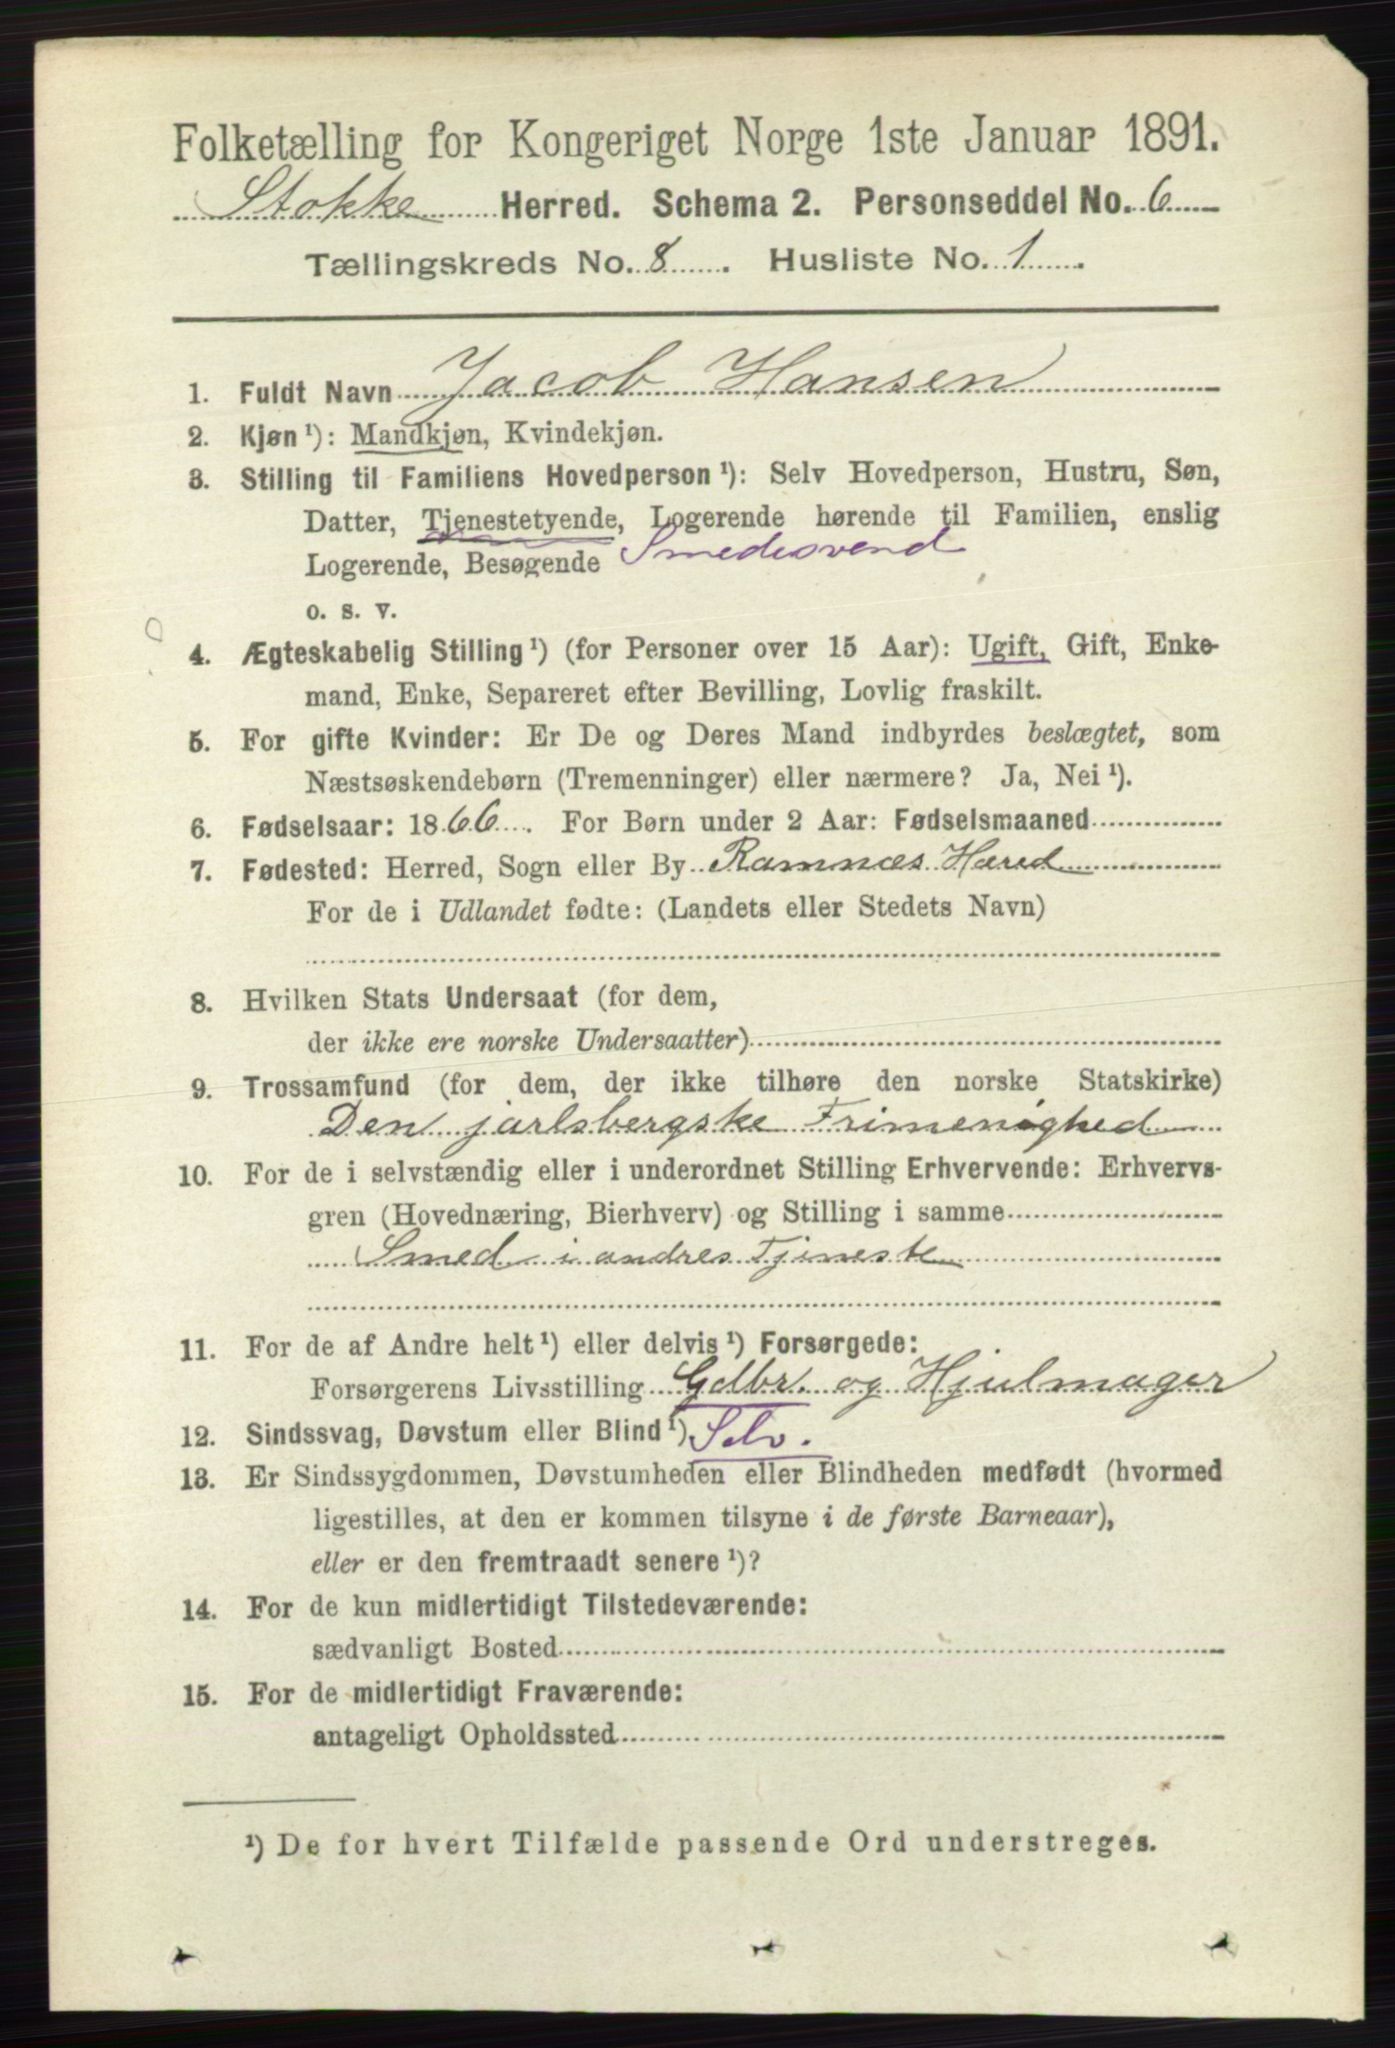 Folketælling for Kongeriget Norge 1ste Januar 1891.
Stokke Herred. Schema 2. Personseddel No. 6
Tællingskreds No. 8. Husliste No. 1.
1. Fuldt Navn Jacob Hansen
2. Kjøn ¹): Mandkjøn, Kvindekjøn.
3. Stilling til Familiens Hovedperson ¹): Selv Hovedperson, Hustru, Søn,
Datter, Tjenestetyende, Logerende hørende til Familien, enslig
Logerende, Besøgende Smedesvend
o. s. v.
4. Ægteskabelig Stilling ¹) (for Personer over 15 Aar): Ugift, Gift, Enke-
mand, Enke, Separeret efter Bevilling, Lovlig fraskilt.
5. For gifte Kvinder: Er De og Deres Mand indbyrdes beslægtet, som
Næstsøskendebørn (Tremenninger) eller nærmere? Ja, Nei ¹).
6. Fødselsaar: 1866. For Børn under 2 Aar: Fødselsmaaned
7. Fødested: Herred, Sogn eller By Ramnæs Hæred
For de i Udlandet fødte: (Landets eller Stedets Navn)
8. Hvilken Stats Undersaat (for dem,
der ikke ere norske Undersaatter)
9. Trossamfund (for dem, der ikke tilhøre den norske Statskirke)
Den jarlsbergske Frimenighed
10. For de i selvstændig eller i underordnet Stilling Erhvervende: Erhvervs-
gren (Hovednæring, Bierhverv) og Stilling i samme
Smed i andres Tjeneste
11. For de af Andre helt ¹) eller delvis ¹) Forsørgede:
Forsørgerens Livsstilling Gdbr. og Hjulmager
12. Sindssvag, Døvstum eller Blind ¹) Selv.
13. Er Sindssygdommen, Døvstumheden eller Blindheden medfødt (hvormed
ligestilles, at den er kommen tilsyne i de første Barneaar),
eller er den fremtraadt senere ¹)?
14. For de kun midlertidigt Tilstedeværende:
sædvanligt Bosted
15. For de midlertidigt Fraværende:
antageligt Opholdssted
¹) De for hvert Tilfælde passende Ord understreges.